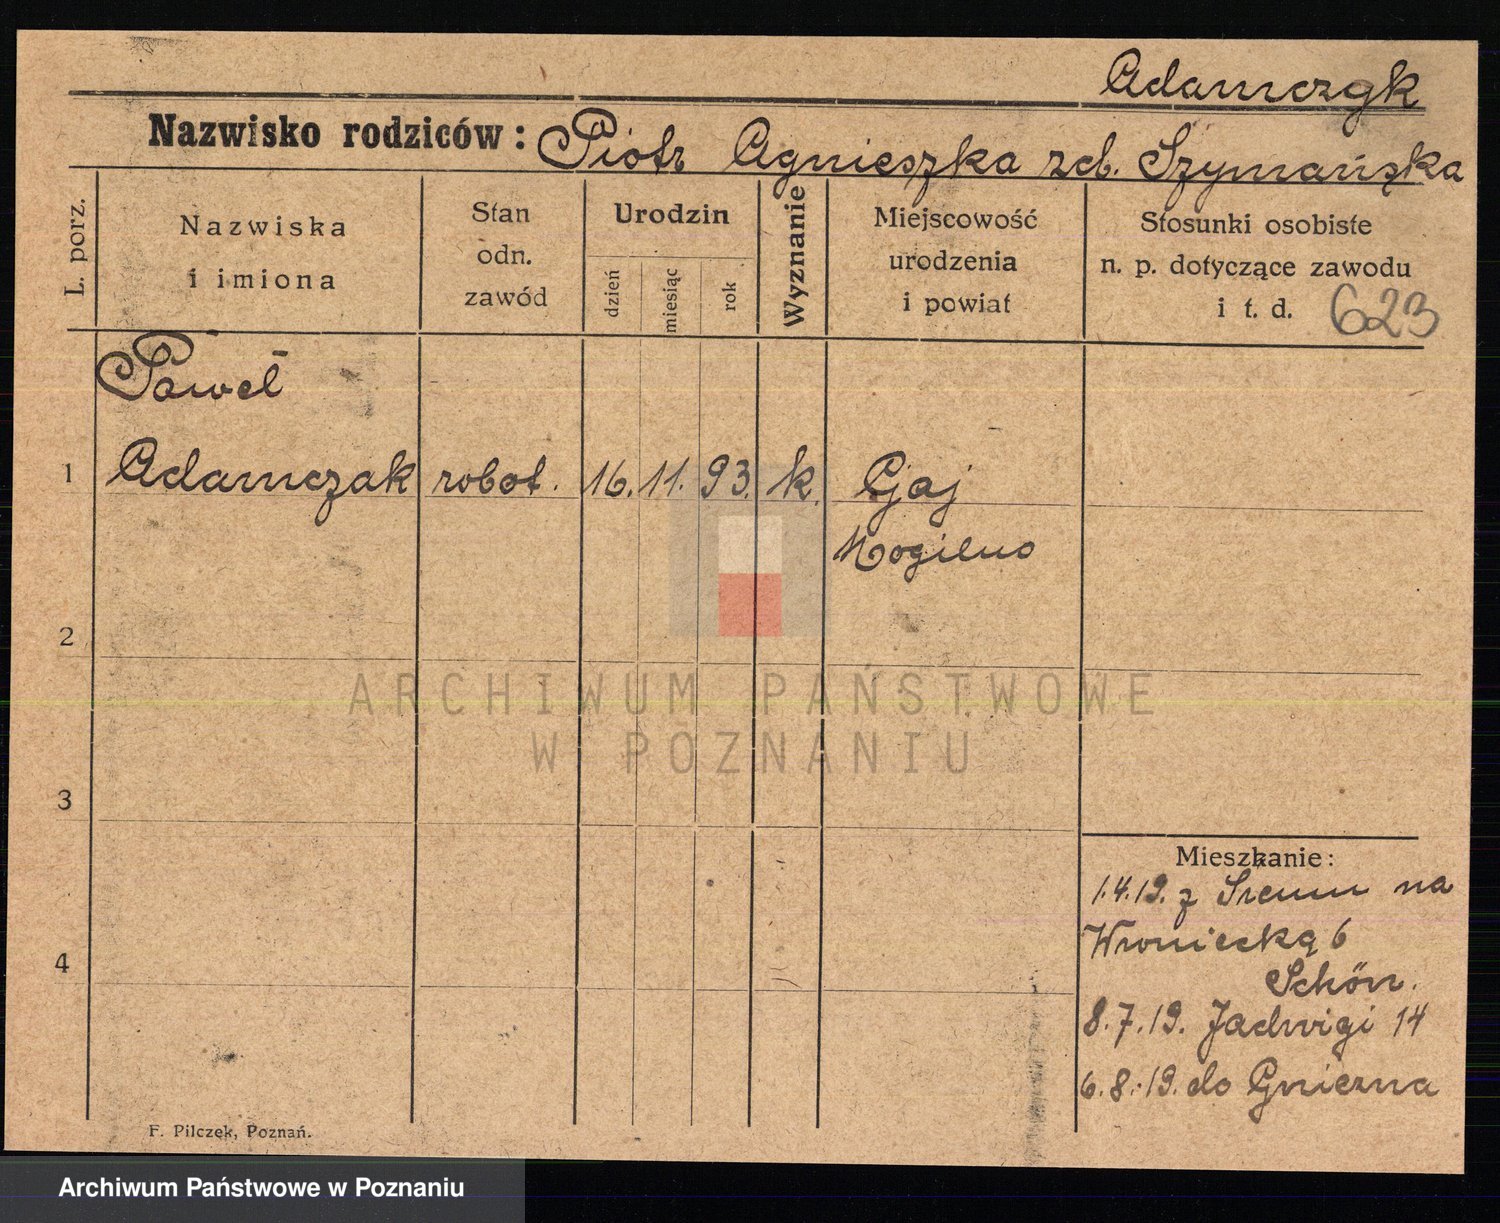 Adamczyk
Nazwisko rodziców: Piotr Agnieszka zeb. Szymańska
L. porz.
Nazwiska
i imiona
Stan
odn.
zawód
Urodzin
dzień
miesiąc
rok
Wyznanie
Miejscowość
urodzenia
i powiat
Stosunki osobiste
n. p. dotyczące zawodu
i t. d. 623
Paweł
1 Adamczak robot. 16. 11. 93. k. Gaj
Mogilno
2
ARCHIWUM PAŃSTWOWE
W POZNANIU
3
Mieszkanie:
1.4.19. z Śremu na
Wroniecką 6
4
Schön.
8.7.19. Jadwigi 14
6.8.19. do Gniezna
F. Pilczek, Poznań.
Archiwum Państwowe w Poznaniu